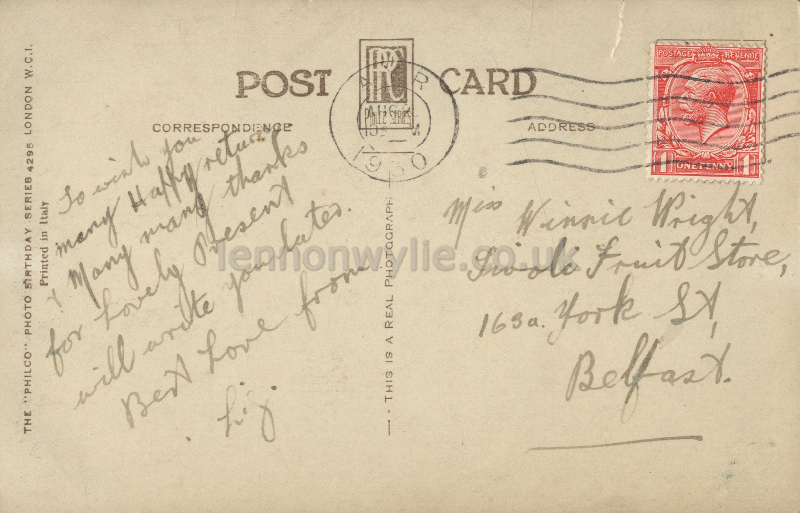 POST CARD
PHILCO SERIES
CORRESPONDENCE
ADDRESS
1930
POSTAGE REVENUE
ONE PENNY
To wish you
many Happy returns
& Many many thanks
for Lovely Present
will write you later.
Best Love from
Liz.
Miss Winnie Wright,
Tivoli Fruit Store,
163a. York St,
Belfast.
lennonwylie.co.uk
THE "PHILCO" PHOTO BIRTHDAY SERIES 4298 LONDON W.C.1.
Printed in Italy
THIS IS A REAL PHOTOGRAPH